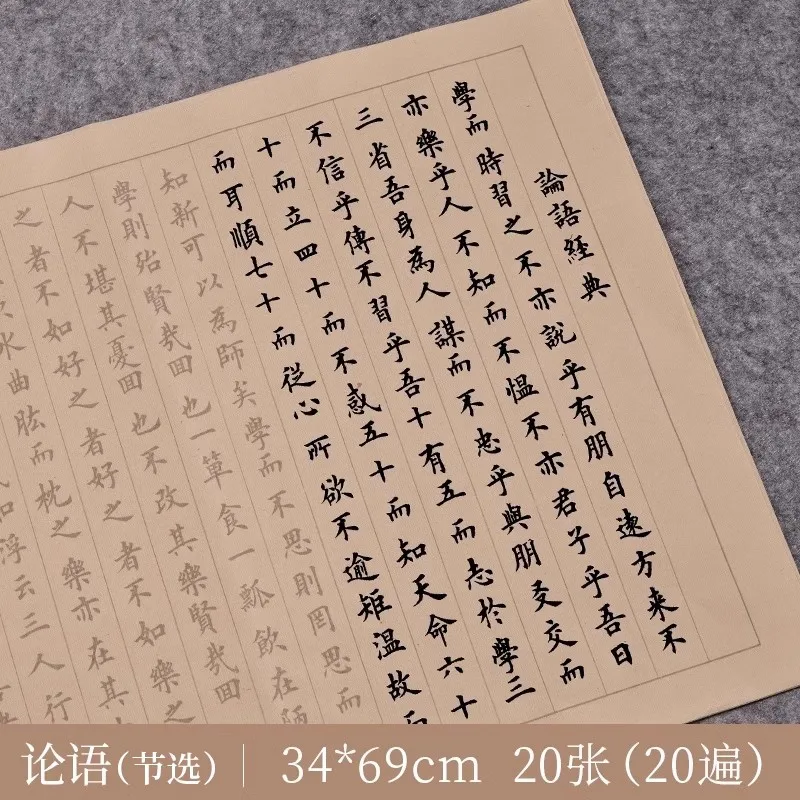 論語經典
學而時習之不亦說乎有朋自遠方来不
亦樂乎人不知而不愠不亦君子乎吾日
三省吾身為人謀而不忠乎與朋友交而
不信乎傳不習乎吾十有五而志於學三
十而立四十而不惑五十而知天命六十
而耳順七十而従心所欲不逾矩温故而
知新可以為師矣學而不思則罔思而
學則殆賢哉回也一箪食一瓢飲在陋
人不堪其憂回也不改其樂賢哉回
之者不如好之者好之者不如樂之
水曲肱而枕之樂亦在其
浮云三人行
论语(节选) 34*69cm 20张(20遍)